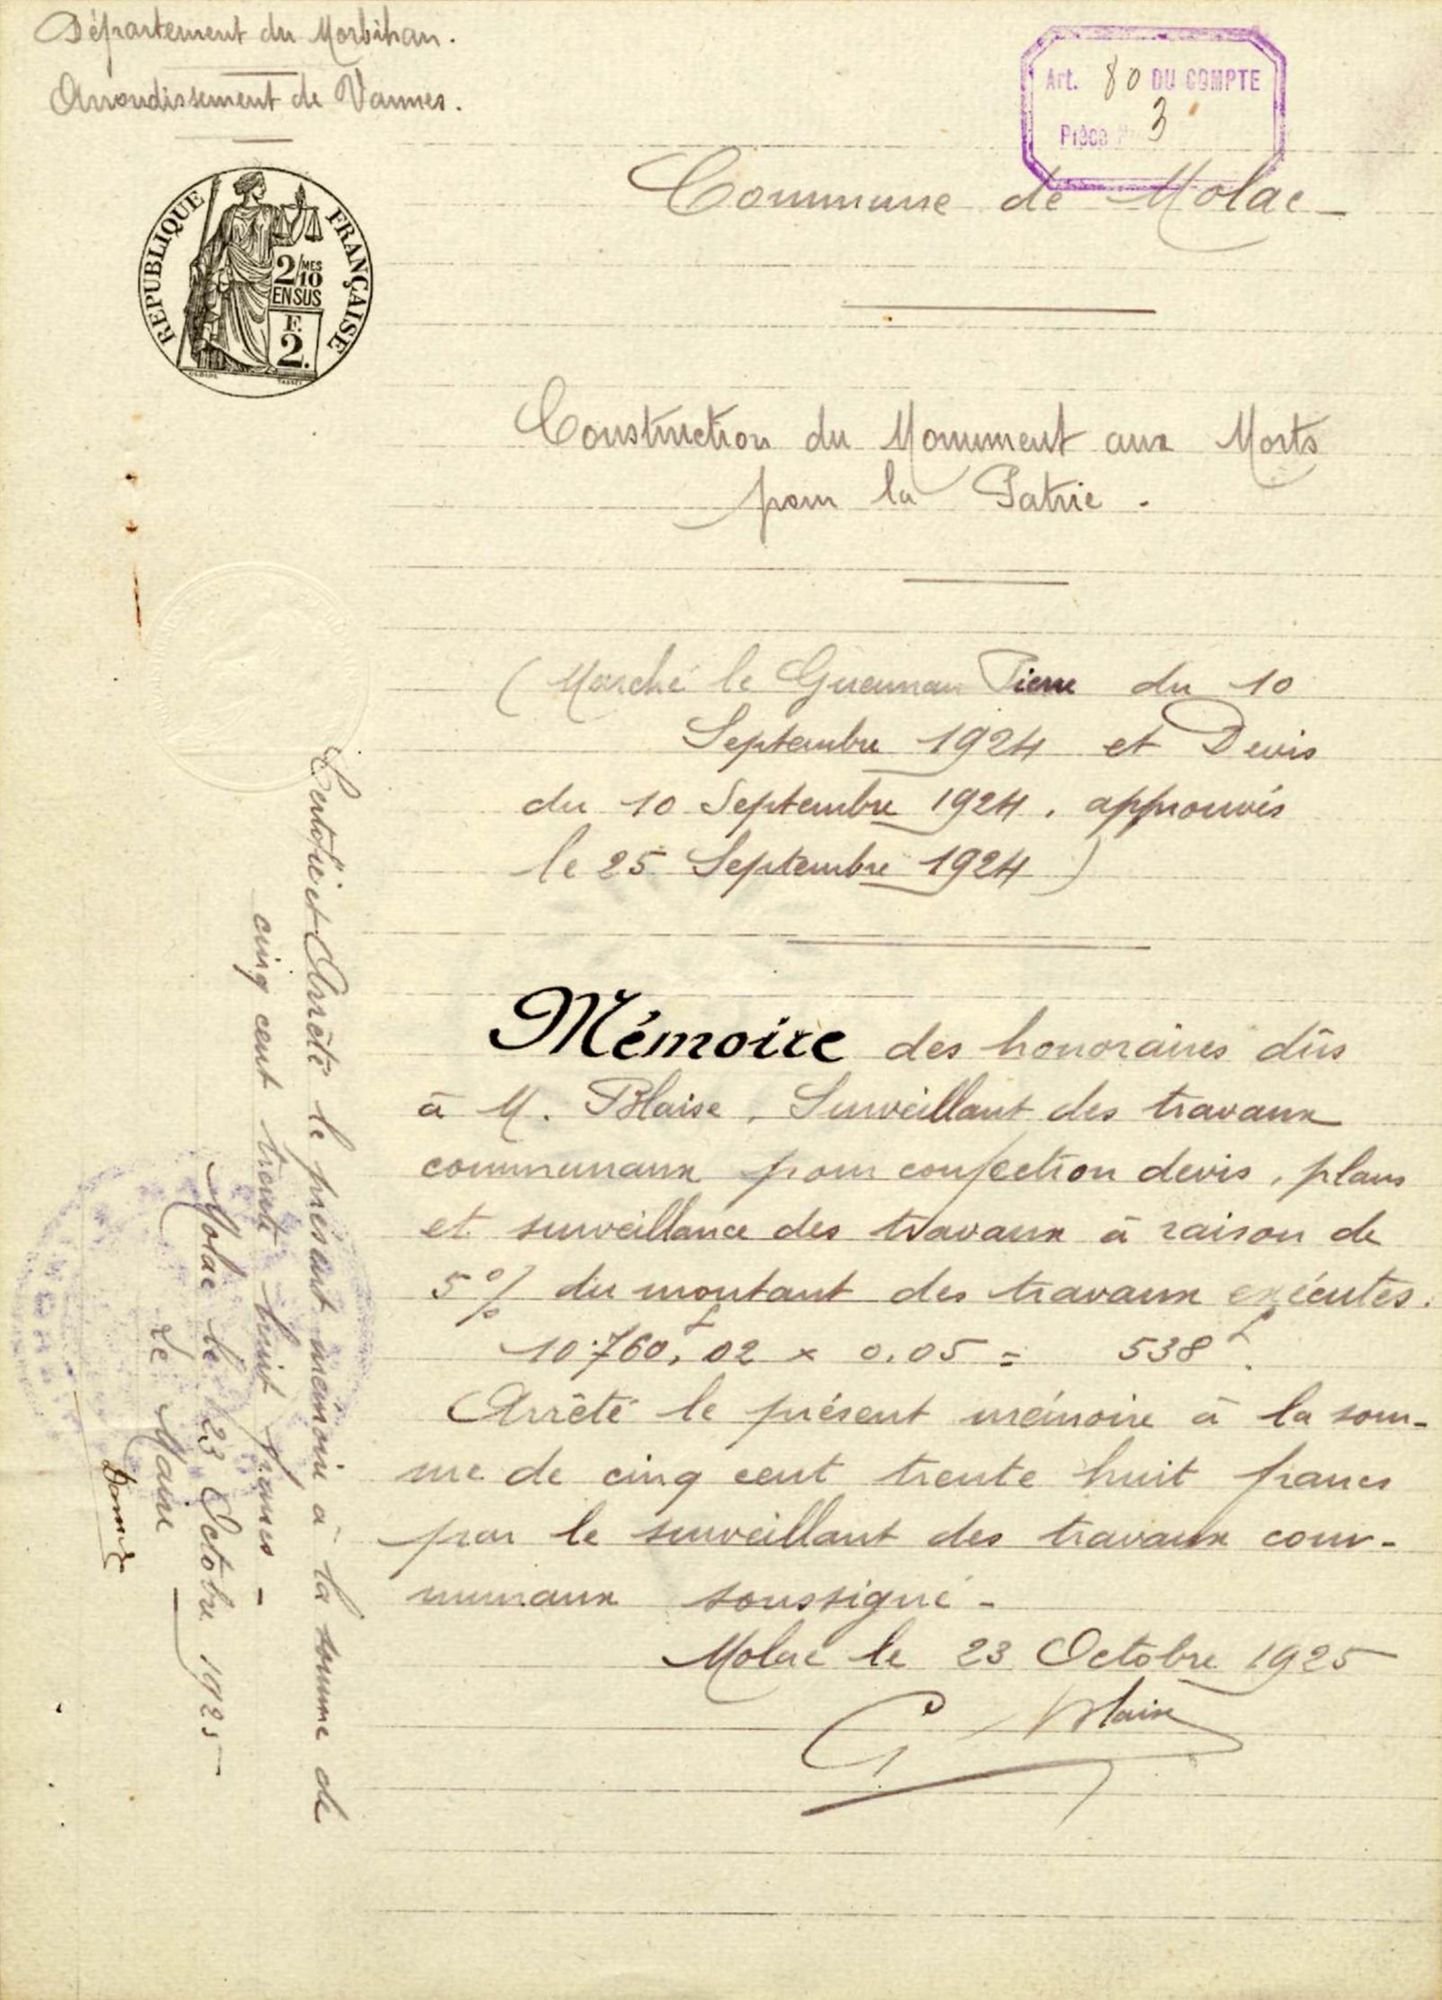 Département du Morbihan.
Arrondissement de Vannes.
Art. 80 DU COMPTE
Pièce N° 3
REPUBLIQUE FRANÇAISE
2/10 MES
EN SUS
F.
2.
Commune de Molac
Construction du Monument aux Morts
pour la Patrie.
(Marché le Pierre du 10
Septembre 1924 et Devis
du 10 Septembre 1924, approuvés
le 25 Septembre 1924)
Mémoire des honoraires dûs
à M. Blaise, Surveillant des travaux
communaux pour confection devis, plans
et surveillance des travaux à raison de
5% du montant des travaux exécutés.
10.760f,02 x 0.05 = 538f.
Arrêté le présent mémoire à la som-
me de cinq cent trente huit francs
par le surveillant des travaux com-
munaux soussigné -
Molac le 23 Octobre 1925
G Blaise
et Arrêté le présent mémoire à la somme de
cinq cent trente huit francs -
Molac le 23 Octobre 1925
Le Maire